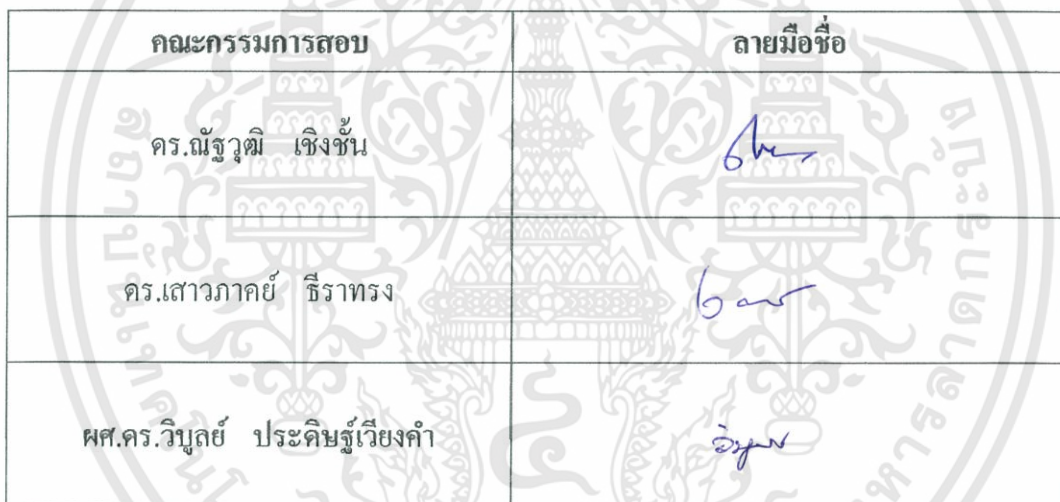 คณะกรรมการสอบ ลายมือชื่อ
ดร.ณัฐวุฒิ เชิงชั้น
ดร.เสาวภาคย์ ธีราทรง
ผศ.ดร.วิบูลย์ ประดิษฐ์เวียงคำ